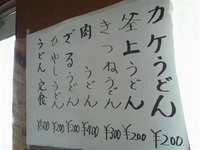 カケうどん ¥200
釜上うどん ¥200
きつねうどん ¥300
肉うどん ¥400
ざるうどん ¥200
ひやしうどん ¥200
うどん定食 ¥500